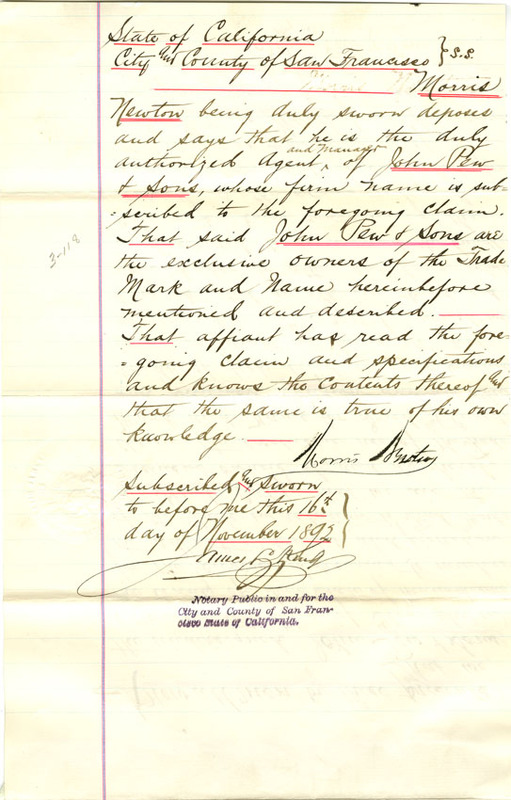 State of California
City and County of San Francisco } S.S.
Morris
Newton being duly sworn deposes
and says that he is the duly
and manager
authorized Agent ^ of John Pew
& Sons, whose firm name is sub-
-scribed to the foregoing claim.
That said John Pew & Sons are
the exclusive owners of the Trade
Mark and Name hereinbefore
mentioned and described.
That affiant has read the fore-
-going claim and specifications
and knows the Contents thereof and
that the same is true of his own
knowledge
Morris Newton
Subscribed and Sworn
to before me this 16th
day of November 1892
James L. King
Notary Public in and for the
City and County of San Fran-
cisco State of California.
3-118